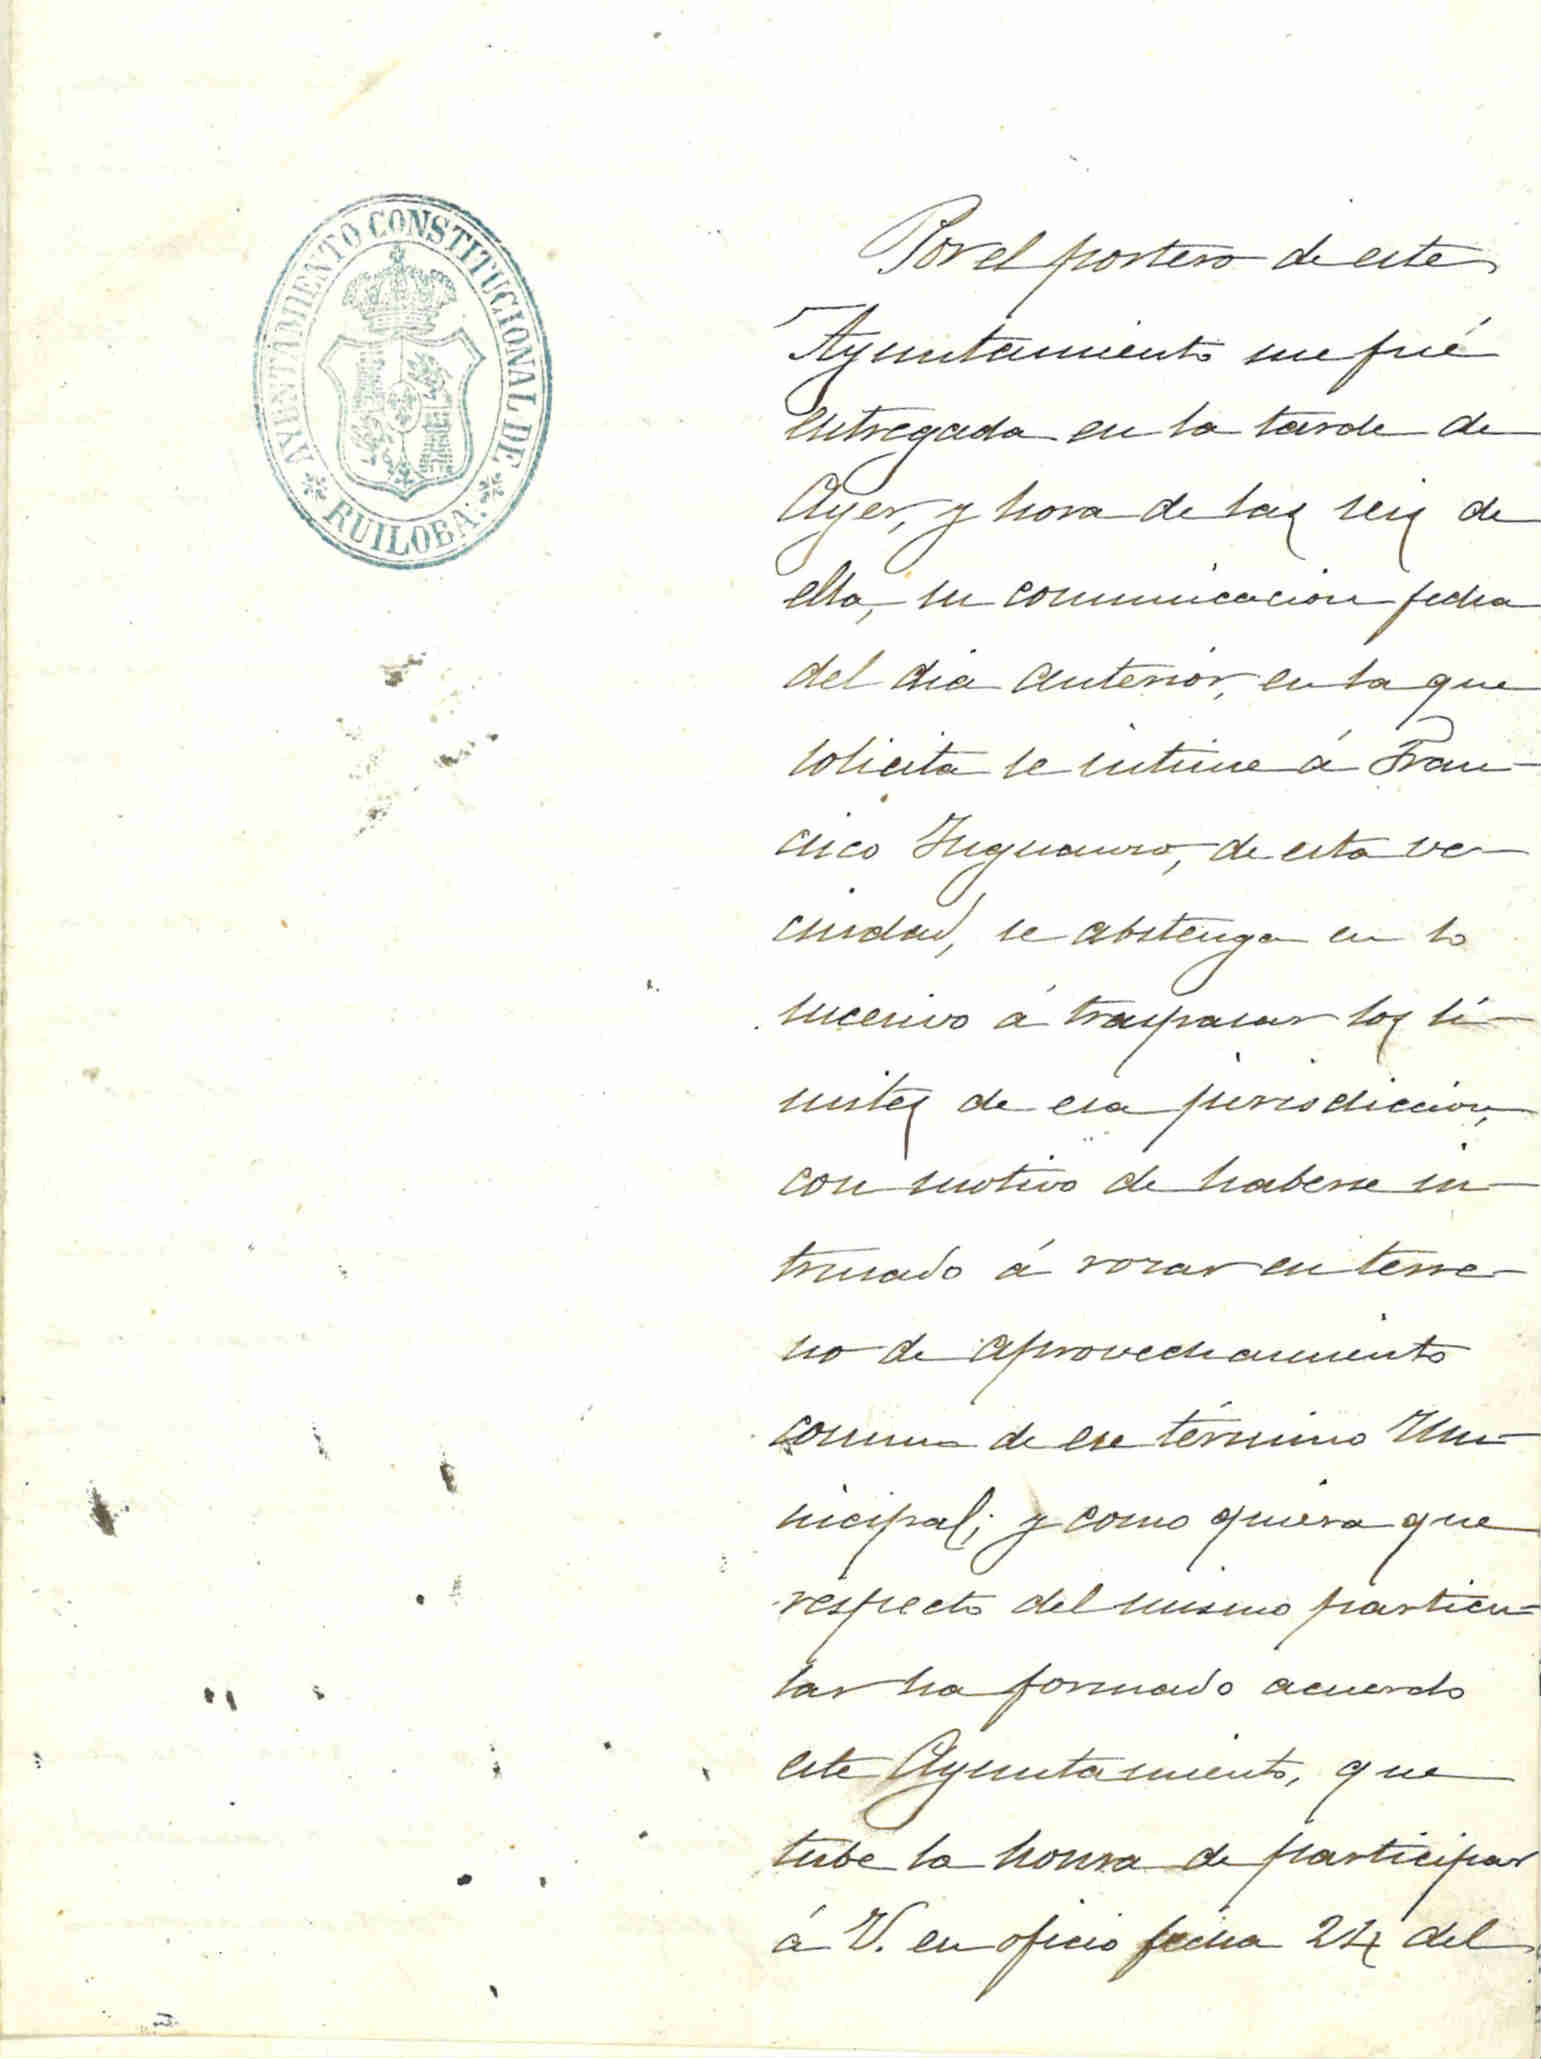 AYUNTAMIENTO CONSTITUCIONAL DE
RUILOBA.
Por el portero de este
Ayuntamiento me fué
entregada en la tarde de
Ayer, y hora de las seis de
ella, su comunicacion fecha
del dia anterior, en la que
solicita se intime á Fran-
cisco, de esta ve-
cindad, se abstenga en lo
sucesivo á traspasar los lí-
mites de esa jurisdiccion,
con motivo de haberse in-
trusado á rozar en terre-
no de aprovechamiento
comun de ese término Mu-
nicipal; y como quiera que
respecto del mismo particu-
lar ha formado acuerdo
este Ayuntamiento, que
tube la honra de participar
á V. en oficio fecha 24 del